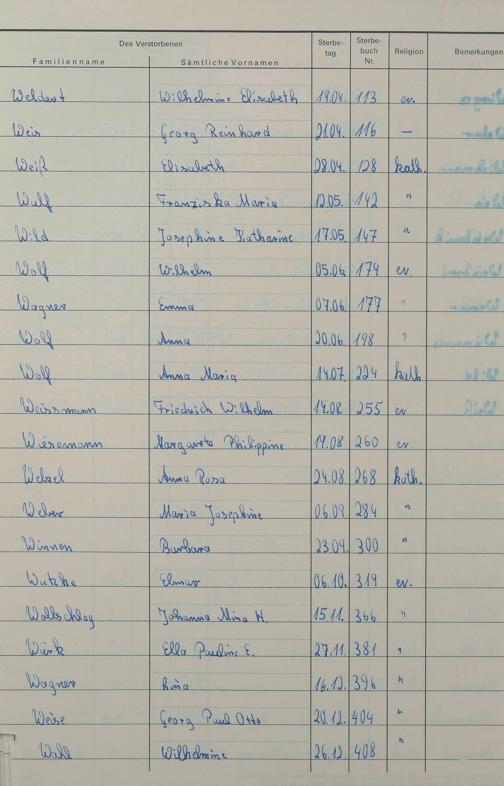 Des Verstorbenen Sterbe- Sterbe- Religion Bemerkungen
tag buch
Nr.
Familienname Sämtliche Vornamen
Weldert Wilhelmine Elisabeth 19.04. 113 ev.
Weis Georg Reinhard 21.04. 116 —
Weiß Elisabeth 28.04. 128 kath.
Wulf Franziska Maria 12.05. 142 "
Wild Josephine Katharine 17.05. 147 "
Wolf Wilhelm 05.06 174 ev.
Wagner Emma 07.06. 177 "
Wolf Anna 20.06. 198 "
Wolf Anna Maria 14.07. 224 kath
Weissmann Friedrich Wilhelm 14.08. 255 ev
Wiesemann Margarete Philippine 19.08 260 ev.
Welzel Anna Rosa 24.08 268 kath.
Weber Maria Josephine 06.09 284 "
Winnen Barbara 23.09. 300 "
Watzke Elmar 06.10. 319 ev.
Wallschlag Johanna Mina H. 15.11. 366 "
Würk Ella Pauline E. 27.11. 381 "
Wagner 16.12. 396 "
Weise Georg Paul Otto 20.12. 404 "
Wall Wilhelmine 26.12. 408 "